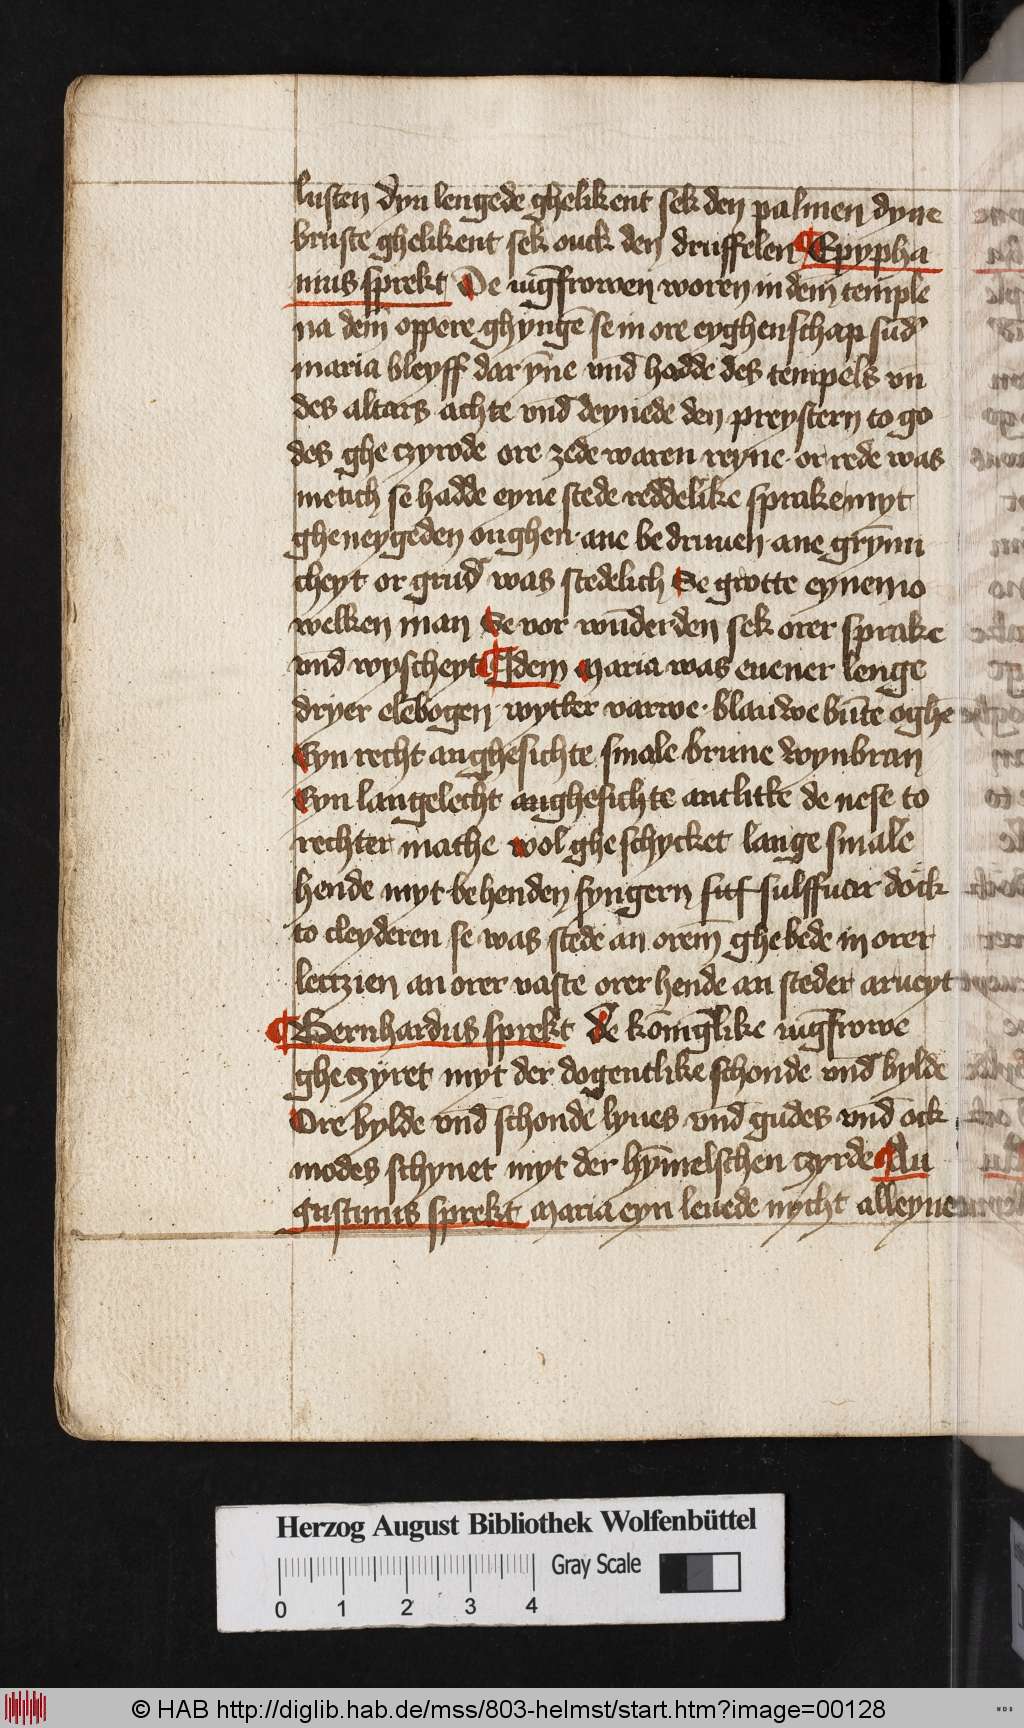 lusten dyn lengede ghelikent sek den palmen dyne
bruste ghelikent sek ouck den druffelen ¶ Epypha
nius sprekt De iūgfrowen woren in dem temple
na dem oppere ghyngē se in ore eyghenschap sūd'
maria bleyff dar ȳne vnd hadde des tempels vn
des altars achte vnd deynede den preystern to go
des ghe czyrode ore zede waren reyne · or rede was
metich se hadde eyne stede reddelike sprake myt
gheneygeden oughen · ane bedruuen ane grȳmi
cheyt or grud was stedelich Se grotte eynemo
welken man Se vor wūderden sek orer sprake
vnd wyscheyt ¶ Idem Maria was euener lenge
dryer elēbogen · wytter varwe · blauwe būte oghē
Eyn recht anghesichte smale brune wynbran
Eyn langelecht anghesichte antlitte de nese to
rechter mathe wol gheschycket lange smale
hende myt behenden fyngern sulffuar dock
to cleyderen se was stede an orem ghebede in orer
lectzien an orer vaste orer hende an steder arueyt
¶ Bernhardus sprekt de kōniglike iūgfrowe
gheczyret myt der dogentlike schonde vnd bylde
Ore bylde vnd schonde lyues vnd gudes vnd ock
modes schynet myt der hȳmelschen czyrde ¶ Au
gustinus sprekt Maria eyn leuede nycht alleyne
Herzog August Bibliothek Wolfenbüttel
Gray Scale
0 1 2 3 4
© HAB http://diglib.hab.de/mss/803-helmst/start.htm?image=00128